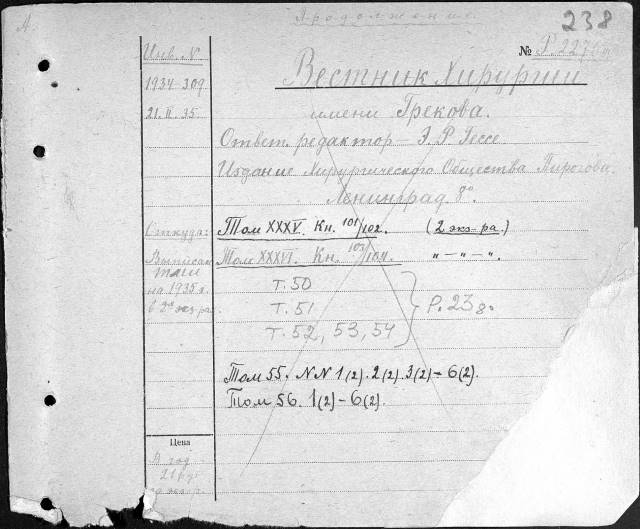 Продолжение.
238
А.
Инв. N
1934 309
21.II.35.
№ Р.227
Вестник Хирургии
имени Грекова.
Ответ. редактор – Э. Р. Гессе.
Издание Хирургического Общества Пирогова.
Ленинград 8°.
Откуда:
Том XXXV. Кн. 101/102. (2 экз-ра.)
Выписан
Том XXXVI. Кн. 103/104. " – " – ".
на 1935 г.
т. 50
т. 51
Р. 238.
т. 52, 53, 54
Том 55. NN 1(2). 2(2). 3(2) – 6(2).
Том 56. 1(2) – 6(2).
Цена